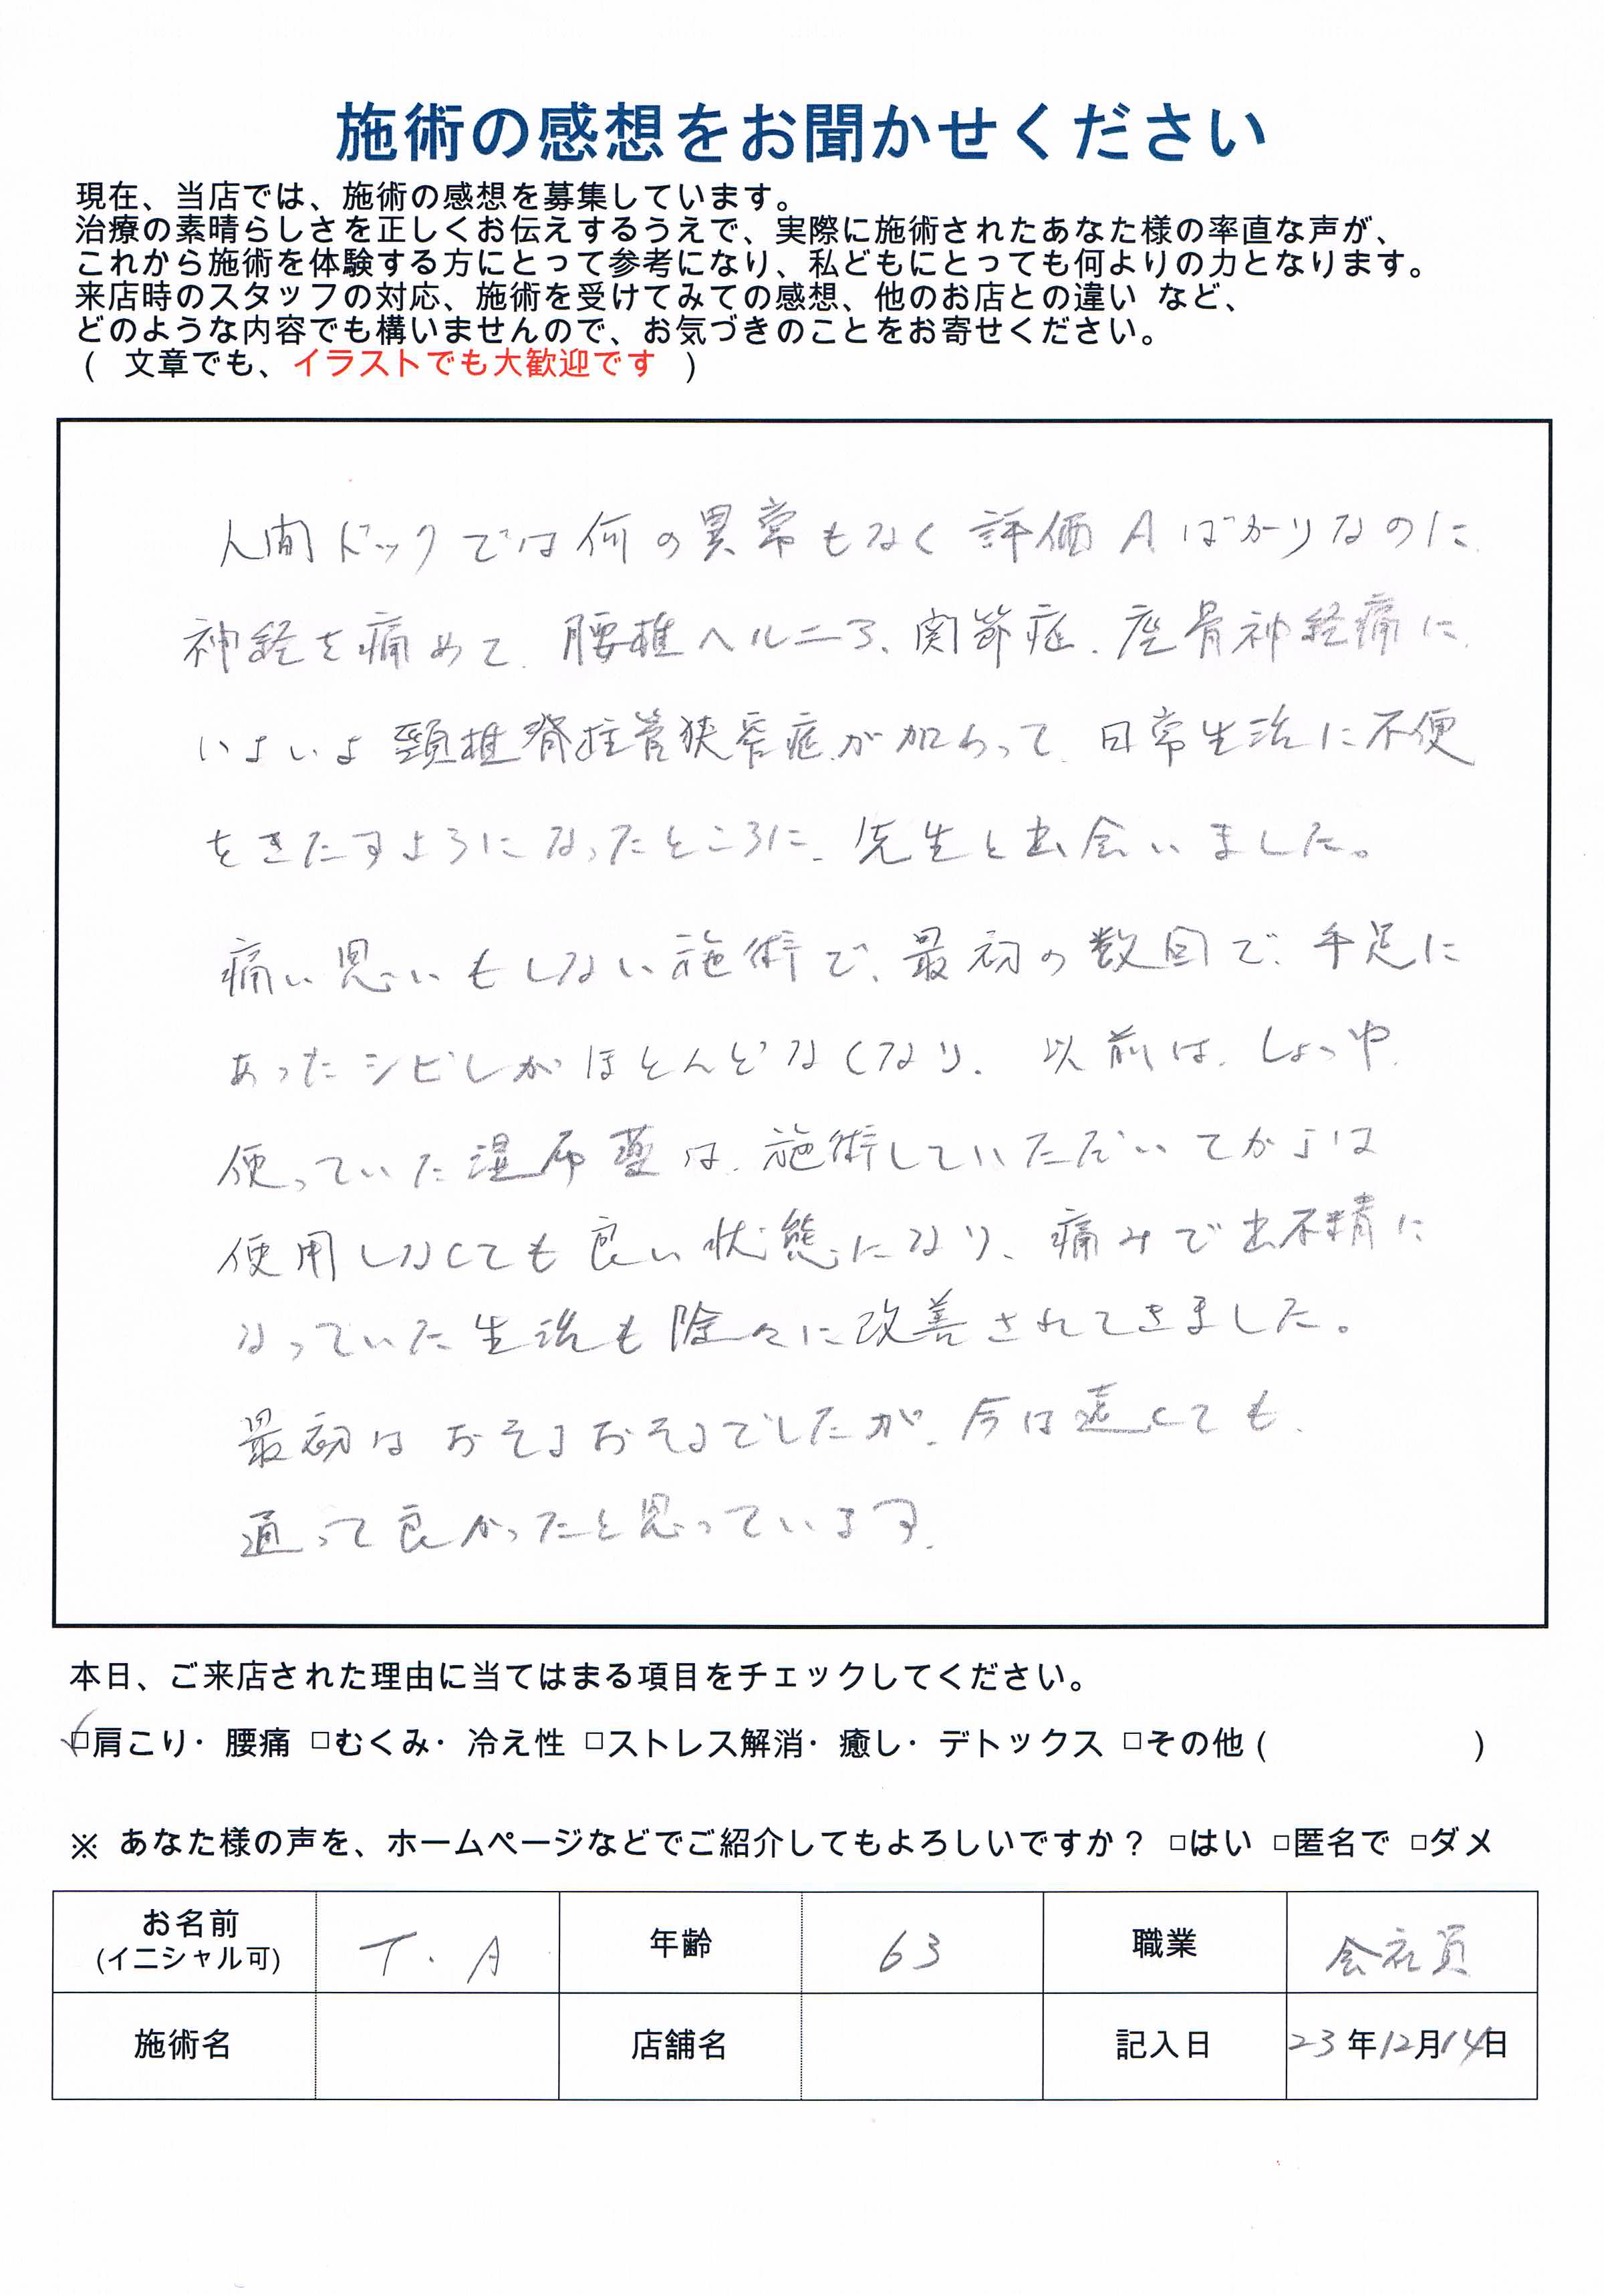 施術の感想をお聞かせください
現在、当店では、施術の感想を募集しています。
治療の素晴らしさを正しくお伝えするうえで、実際に施術されたあなた様の率直な声が、
これから施術を体験する方にとって参考になり、私どもにとっても何よりの力となります。
来店時のスタッフの対応、施術を受けてみての感想、他のお店との違い など、
どのような内容でも構いませんので、お気づきのことをお寄せください。
( 文章でも、イラストでも大歓迎です )
人間ドックでは何の異常もなく 評価Aばかりなのに、
神経を痛めて、腰椎ヘルニア、関節症、座骨神経痛に、
いよいよ頸椎脊柱管狭窄症が加わって、日常生活に不便
をきたすようになったところに、先生と出会いました。
痛い思いもしない施術で、最初の数回で、手足に
あったシビレがほとんどなくなり、以前は、しょっ中、
使っていた湿布薬は、施術していただいてからは
使用しなくても良い状態になり、痛みで出不精に
なっていた生活も除々に改善されてきました。
最初はおそるおそるでしたが、今は遠くても、
通って良かったと思っています。
本日、ご来店された理由に当てはまる項目をチェックしてください。
☑肩こり・腰痛 □むくみ・冷え性 □ストレス解消・癒し・デトックス □その他 ( )
※ あなた様の声を、ホームページなどでご紹介してもよろしいですか？ □はい □匿名で □ダメ
お名前 T.A 年齢 63 職業 会社員
(イニシャル可)
施術名 店舗名 記入日 23年12月14日